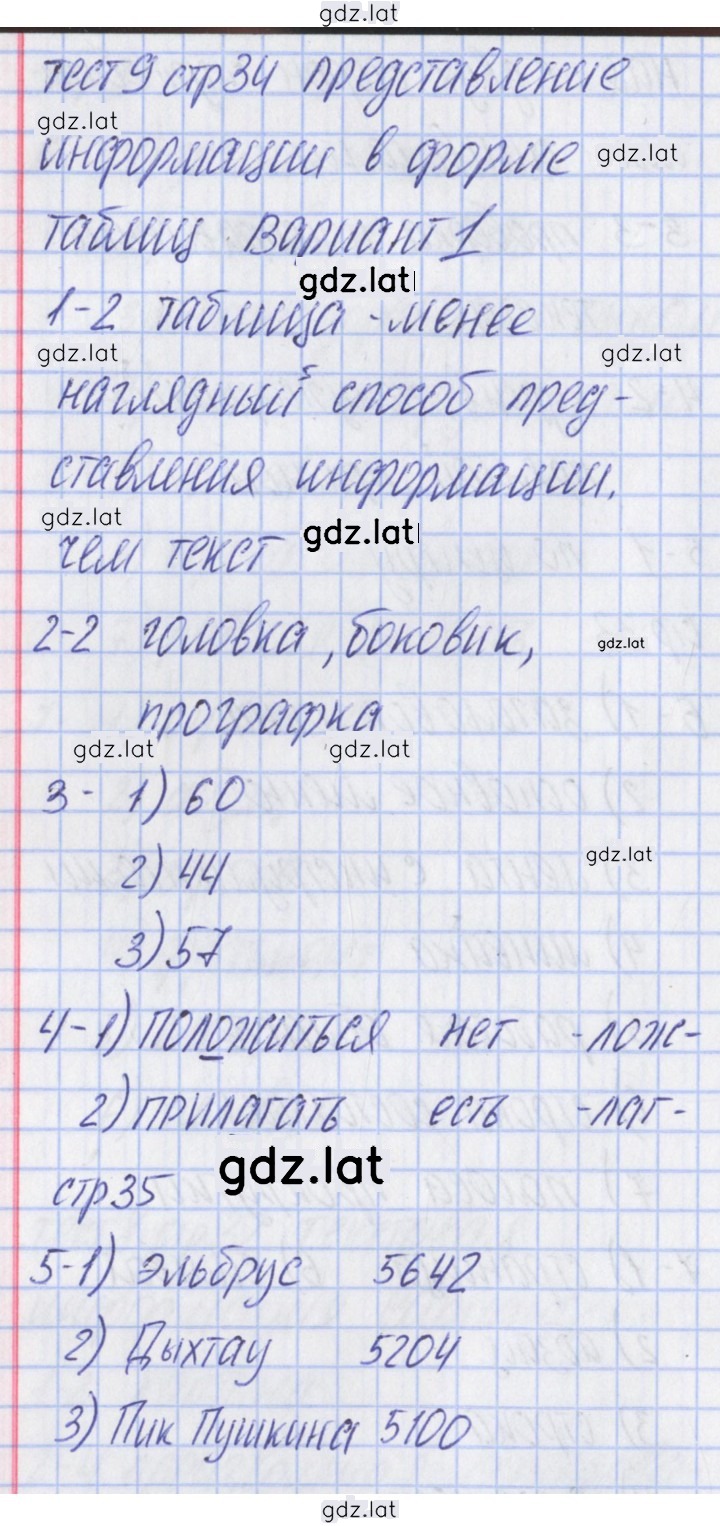 gdz.lat
тест 9 стр 34 представление
gdz.lat
информации в форме gdz.lat
таблиц Вариант 1
gdz.lat
1-2 таблица - менее
gdz.lat gdz.lat
наглядный способ пред-
ставления информации.
gdz.lat gdz.lat
чем текст
2-2 головка, боковик, gdz.lat
прографка
gdz.lat gdz.lat
3- 1) 60
gdz.lat
2) 44
3) 57
4-1) положиться нет -лож-
2) прилагать есть -лаг-
gdz.lat
стр 35
5-1) Эльбрус 5642
2) Дыхтау 5204
3) Пик Пушкина 5100
gdz.lat